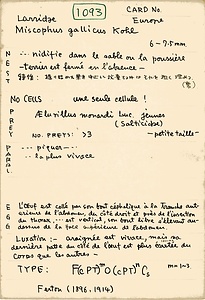 1093
CARD No.
Larridae
Europe
Miscophus gallicus Kohl
6-7.5mm
NEST
... nidifie dans le sable ou la poussière
-terrier est fermé en l'absence -
No CELLS une seule cellule!
PREY
Ælurillus monardi Luc. jeunes
(Salticidae)
No. PREYS: >3 -petite taille-
PARAL.
... piquer ...
... la plus vivace
EGG
L'Œuf est collé par son bout céphalique à la tranche anté-
rieure de l'abdomen, du côté droit et près de l'insertion
du thorax, ... est vertical, son bout libre s'élevant au-
dessus de la face supérieure de l'abdomen.
Luxation:- araignée est vivace, mais sa
dernière patte au côté de l'œuf est plus écartée du
corps que les autres -
TYPE:
Ferton (1896, 1914)